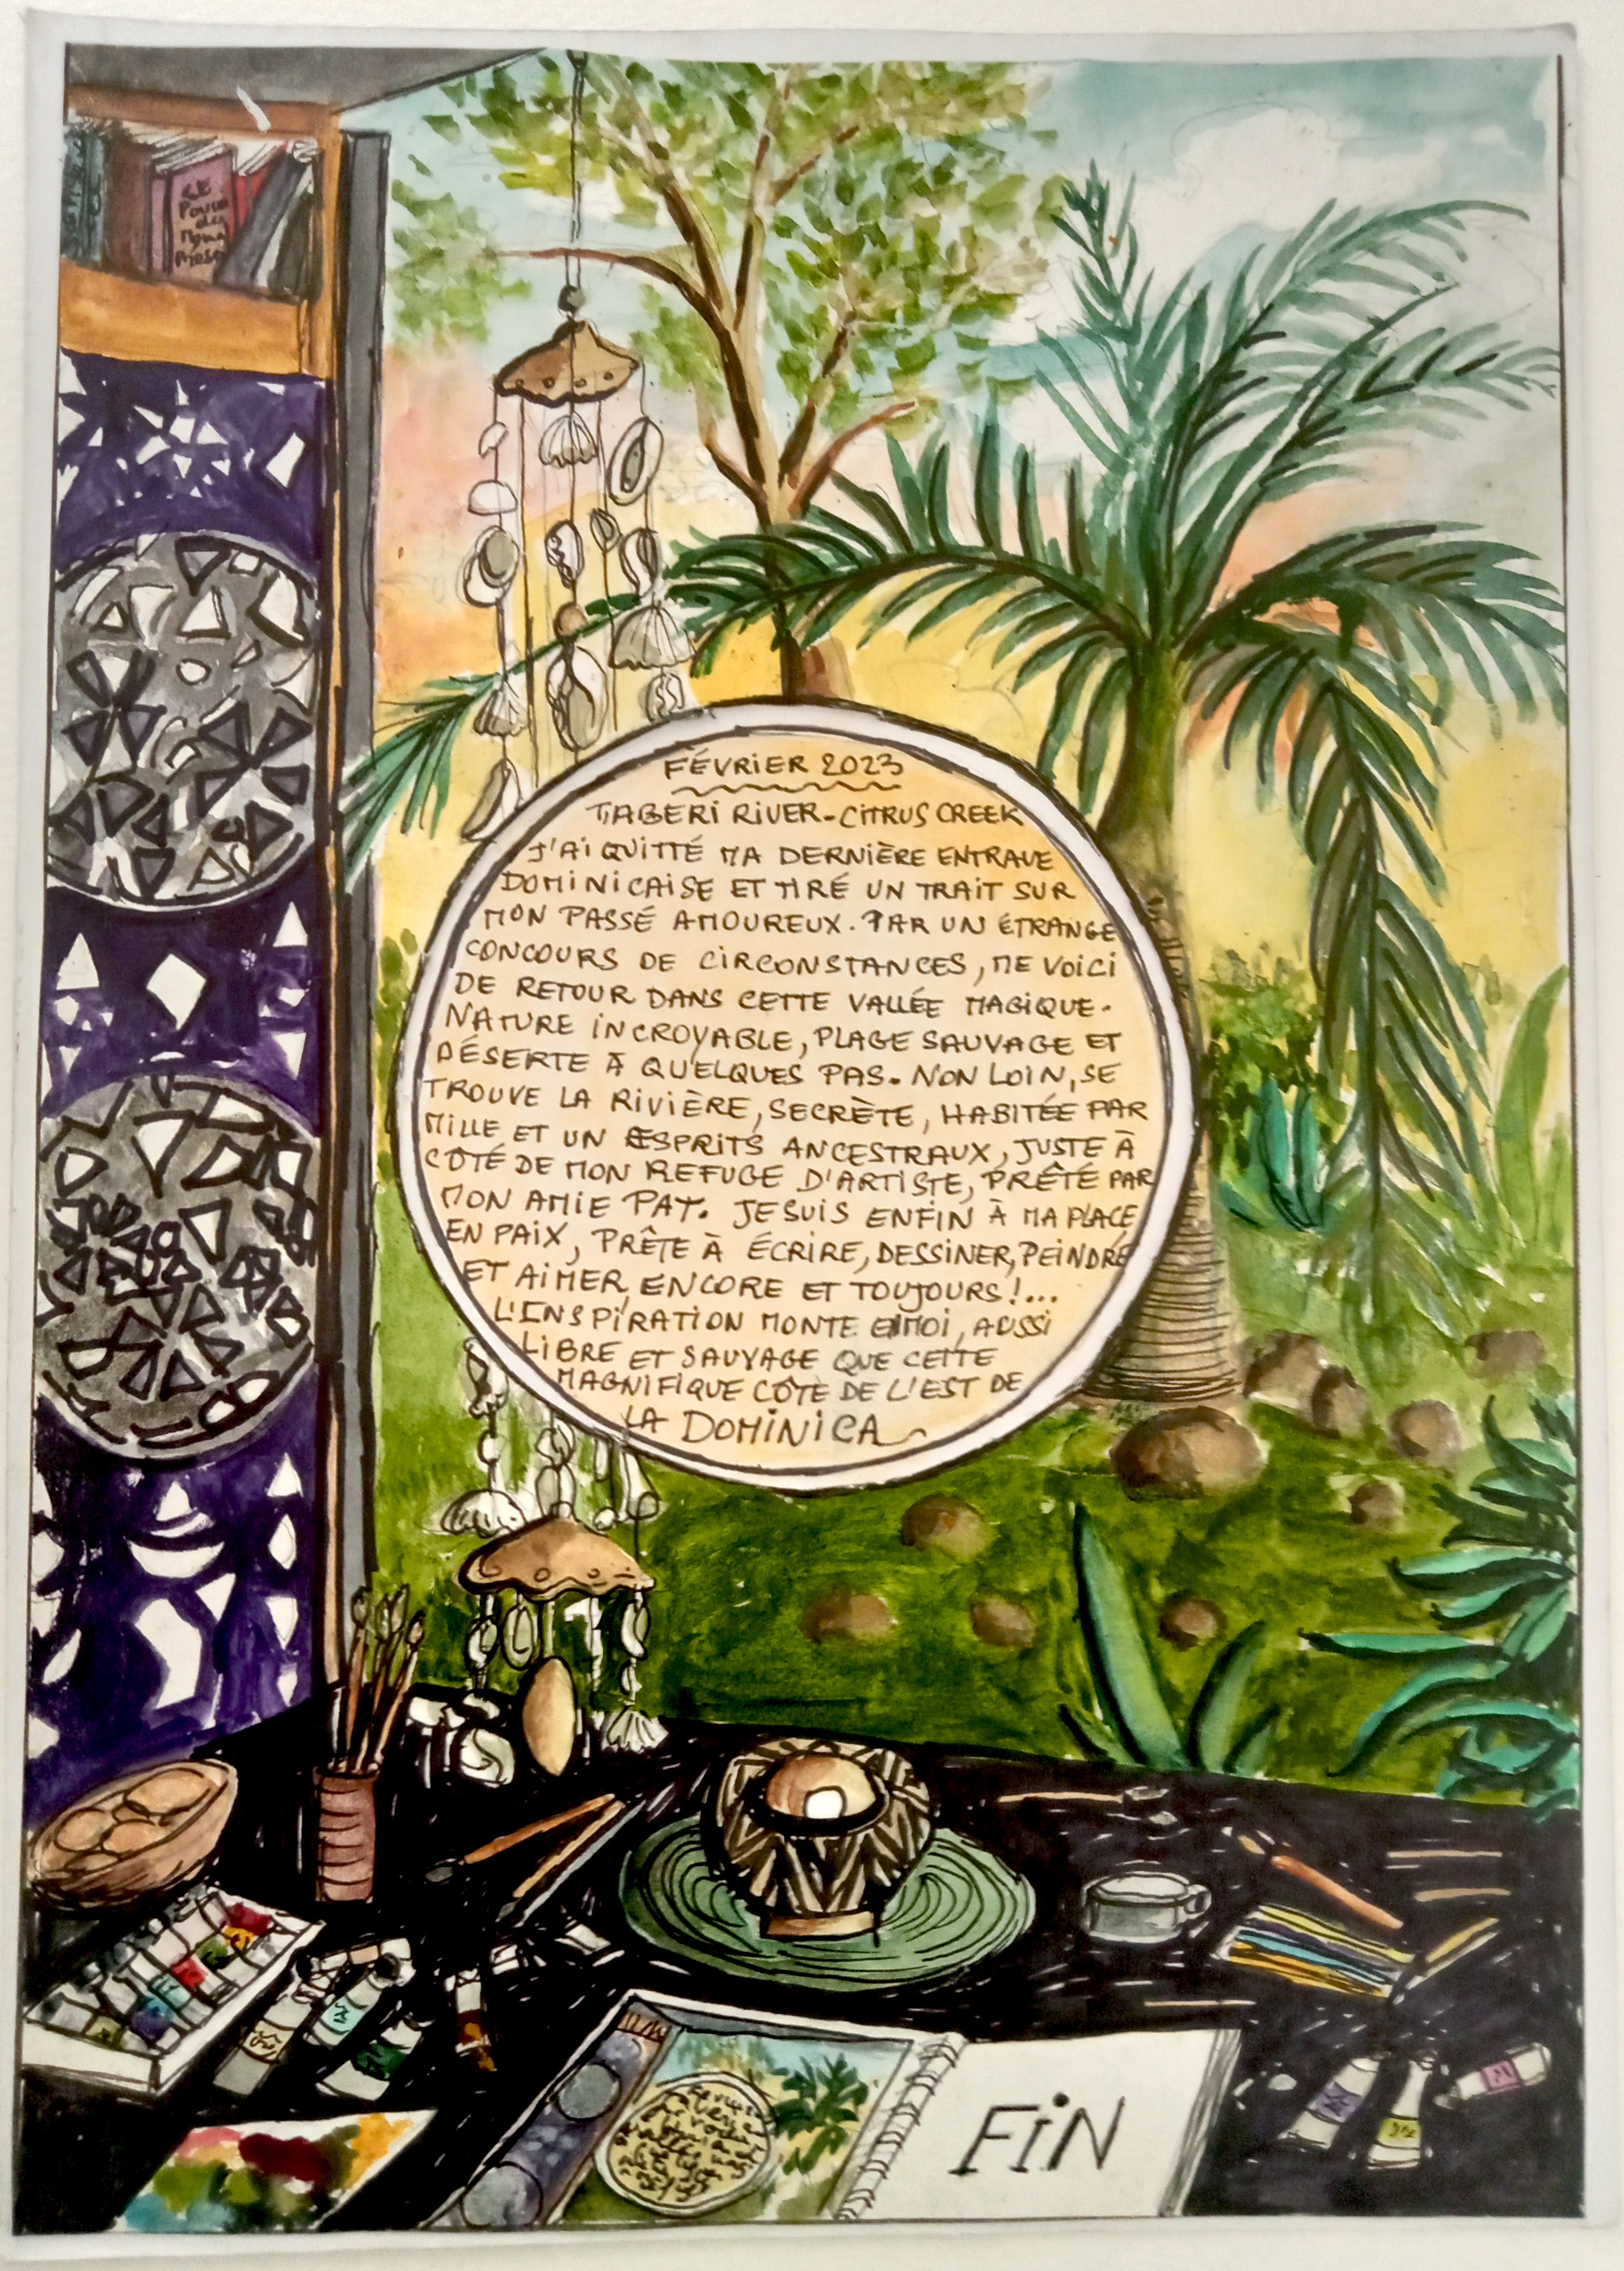 Le
Pouvoir
du
Moment
Présent
FÉVRIER 2023
TABERI RIVER - CITRUS CREEK
J'AI QUITTÉ MA DERNIÈRE ENTRAVE
DOMINICAISE ET TIRÉ UN TRAIT SUR
MON PASSÉ AMOUREUX. PAR UN ÉTRANGE
CONCOURS DE CIRCONSTANCES, ME VOICI
DE RETOUR DANS CETTE VALLÉE MAGIQUE.
NATURE INCROYABLE, PLAGE SAUVAGE ET
DÉSERTE À QUELQUES PAS. NON LOIN, SE
TROUVE LA RIVIÈRE, SECRÈTE, HABITÉE PAR
MILLE ET UN ESPRITS ANCESTRAUX, JUSTE À
CÔTÉ DE MON REFUGE D'ARTISTE, PRÊTÉ PAR
MON AMIE PAT. JE SUIS ENFIN À MA PLACE
EN PAIX, PRÊTE À ÉCRIRE, DESSINER, PEINDRE
ET AIMER ENCORE ET TOUJOURS !...
L'INSPIRATION MONTE EN MOI, AUSSI
LIBRE ET SAUVAGE QUE CETTE
MAGNIFIQUE CÔTE DE L'EST DE
LA DOMINICA
FIN